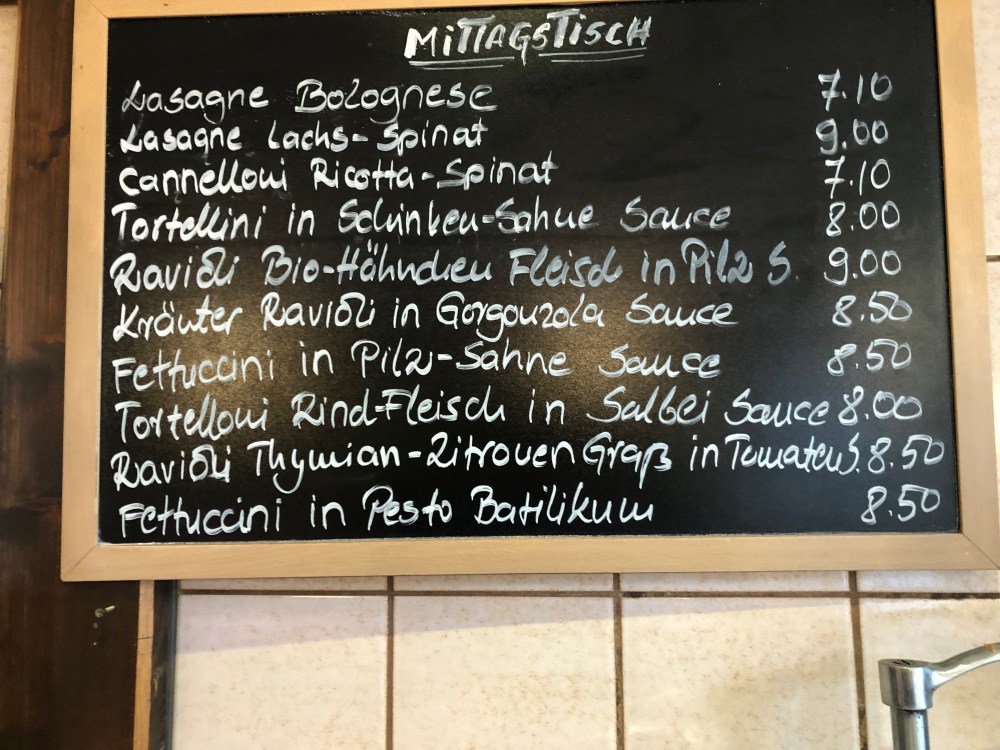 MiTTAGSTiSCH
Lasagne Bolognese 7.10
Lasagne Lachs-Spinat 9.00
Cannelloni Ricotta-Spinat 7.10
Tortellini in Schinken-Sahne Sauce 8.00
Ravioli Bio-Hähnchen Fleisch in Pilz S. 9.00
Kräuter Ravioli in Gorgonzola Sauce 8.50
Fettuccini in Pilz-Sahne Sauce 8.50
Tortelloni Rind-Fleisch in Salbei Sauce 8.00
Ravioli Thymian-Zitronen Graß in Tomaten S. 8.50
Fettuccini in Pesto Batilikum 8.50